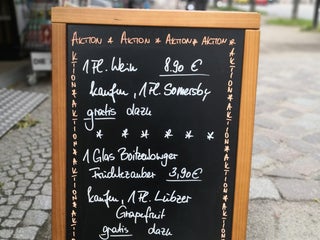 AKTION * AKTION * AKTION * AKTION
1 Fl. Wein 8,90 €
kaufen, 1 Fl. Somersby
gratis dazu
* * * * * *
1 Glas Boitzenburger
Früchtezauber 3,90 €
kaufen, 1 Fl. Lübzer
Grapefruit
gratis dazu
AKTION * AKTION * AKTION
AKTION * AKTION * AKTION